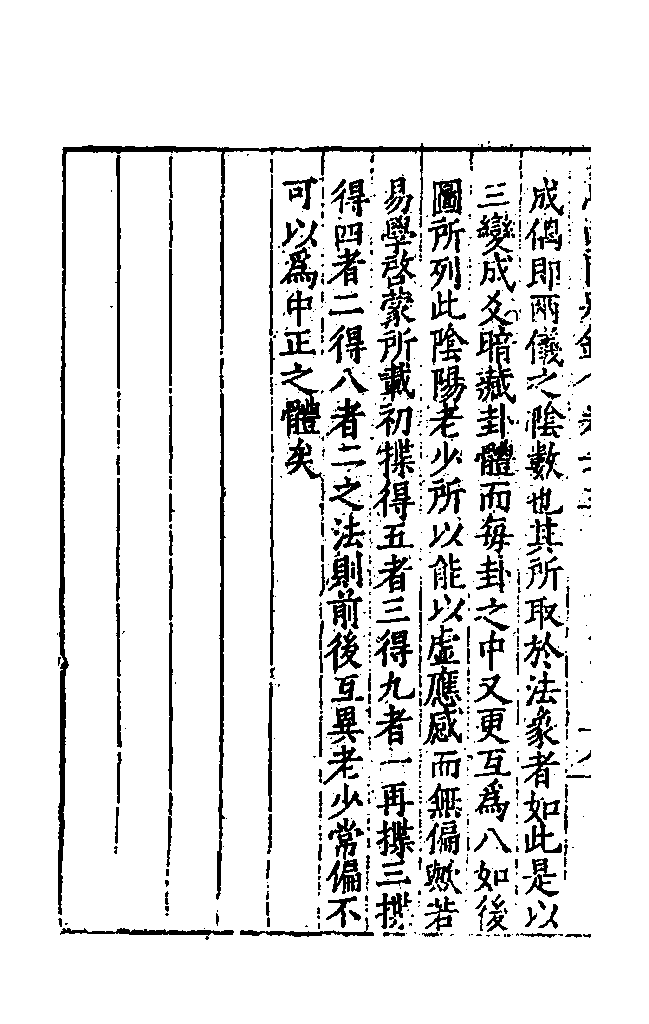 成偶即兩儀之陰數也其所取於法象者如此是以
三變成爻暗藏卦體而每卦之中又更互爲八如後
圖所列此陰陽老少所以能以虛應感而無偏歟若
易學啓蒙所載初揲得五者三得九者一再揲三揲
得四者二得八者二之法則前後互異老少常偏不
可以爲中正之體矣